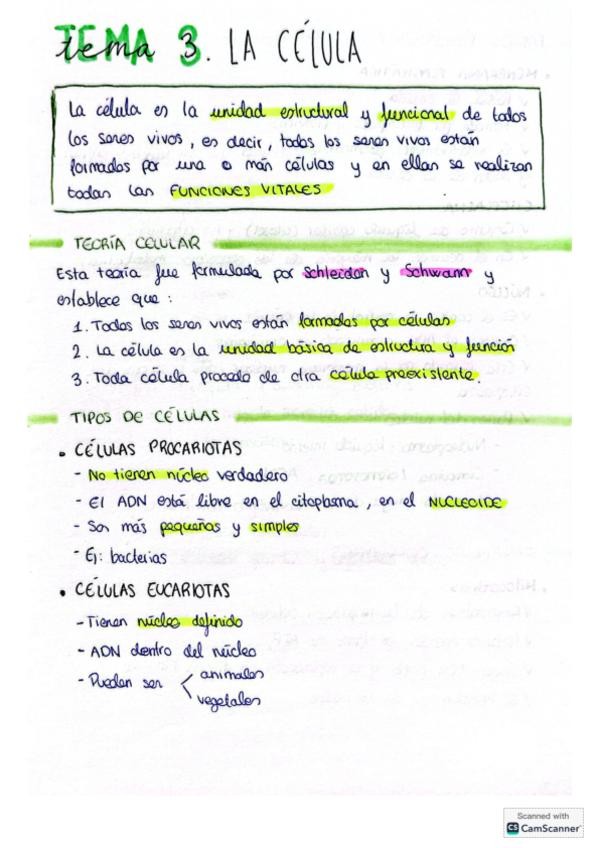 tema 3. LA CÉLULA
La célula es la unidad estructural y funcional de todos
los seres vivos, es decir, todos los seres vivos están
formados por una o más células y en ellas se realizan
todas las FUNCIONES VITALES
TEORÍA CELULAR
Esta teoría fue formulada por Schleiden y Schwann y
establece que:
1. Todos los seres vivos están formados por células
2. La célula es la unidad básica de estructura y función
3. Toda célula procede de otra célula preexistente.
TIPOS DE CÉLULAS
• CÉLULAS PROCARIOTAS
- No tienen núcleo verdadero
- El ADN está libre en el citoplasma, en el NUCLEOIDE
- Son más pequeñas y simples
- Ej: bacterias
• CÉLULAS EUCARIOTAS
- Tienen núcleo definido
- ADN dentro del núcleo
- Pueden ser animales
vegetales
Scanned with
CS CamScanner